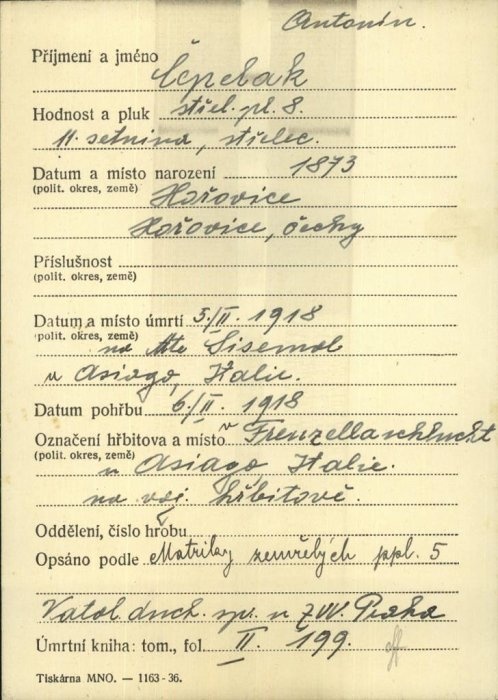 Antonín.
Příjmení a jméno Čpelák
Hodnost a pluk střel. pl. 8.
11. setnina, střelec.
Datum a místo narození 1873
(polit. okres, země) Hořovice
Hořovice, čechy
Příslušnost
(polit. okres, země)
Datum a místo úmrtí 5./II. 1918
(polit. okres, země) na Mte Sisemol
u Asiago, Italie.
Datum pohřbu 6./II. 1918
Označení hřbitova a místo v Frenzellaschlucht
(polit. okres, země) u Asiago, Italie.
na voj. hřbitově.
Oddělení, číslo hrobu
Opsáno podle Matriky zemřelých ppl. 5
Vatol. duch. sp. u ZVV. Praha
Úmrtní kniha: tom., fol. II. 199.
Tiskárna MNO. — 1163-36.